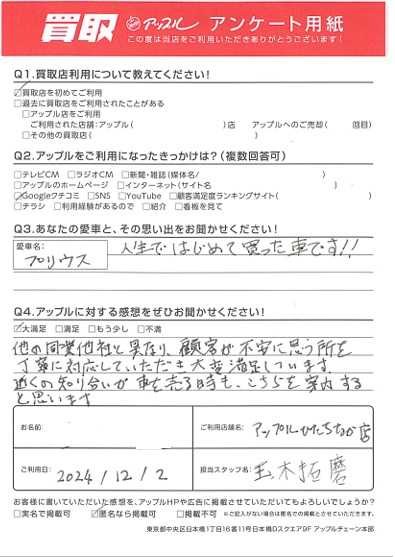 買取 アップル アンケート用紙
この度は当店をご利用いただきありがとうございます!
Q1.買取店利用について教えてください!
☑買取店を初めてご利用
□過去に買取店をご利用されたことがある
□アップル店をご利用
ご利用された店舗:アップル( )店 アップルへのご売却( 回目)
□その他の買取店( )
Q2.アップルをご利用になったきっかけは?(複数回答可)
□テレビCM □ラジオCM □新聞・雑誌(媒体名/ )
□アップルのホームページ □インターネット(サイト名 )
☑Googleクチコミ □SNS □YouTube □顧客満足度ランキングサイト( )
□チラシ □利用経験があるので □紹介 □看板を見て
Q3.あなたの愛車と、その思い出をお聞かせください!
愛車名:
プリウス
人生ではじめて買った車です!!
Q4.アップルに対する感想をぜひお聞かせください!
☑大満足 □満足 □もう少し □不満
他の同業他社と異なり、顧客が不安に思う所を
丁寧に対応していただき大変満足しています。
近くの知り合いが車を売る時も、こちらを案内する
と思います
お名前: ご利用店舗名: アップルひたちなか店
ご利用日: 2024/12/2 担当スタッフ名: 玉木拓磨
お客様に書いていただいた感想を、アップルHPや広告に掲載させていただいてもよろしいでしょうか?
□実名で掲載可 ☑匿名なら掲載可 □掲載不可 ※ご記入がない場合は匿名での掲載とさせていただきます。
東京都中央区日本橋1丁目16番11号日本橋Dスクエア9F アップルチェーン本部